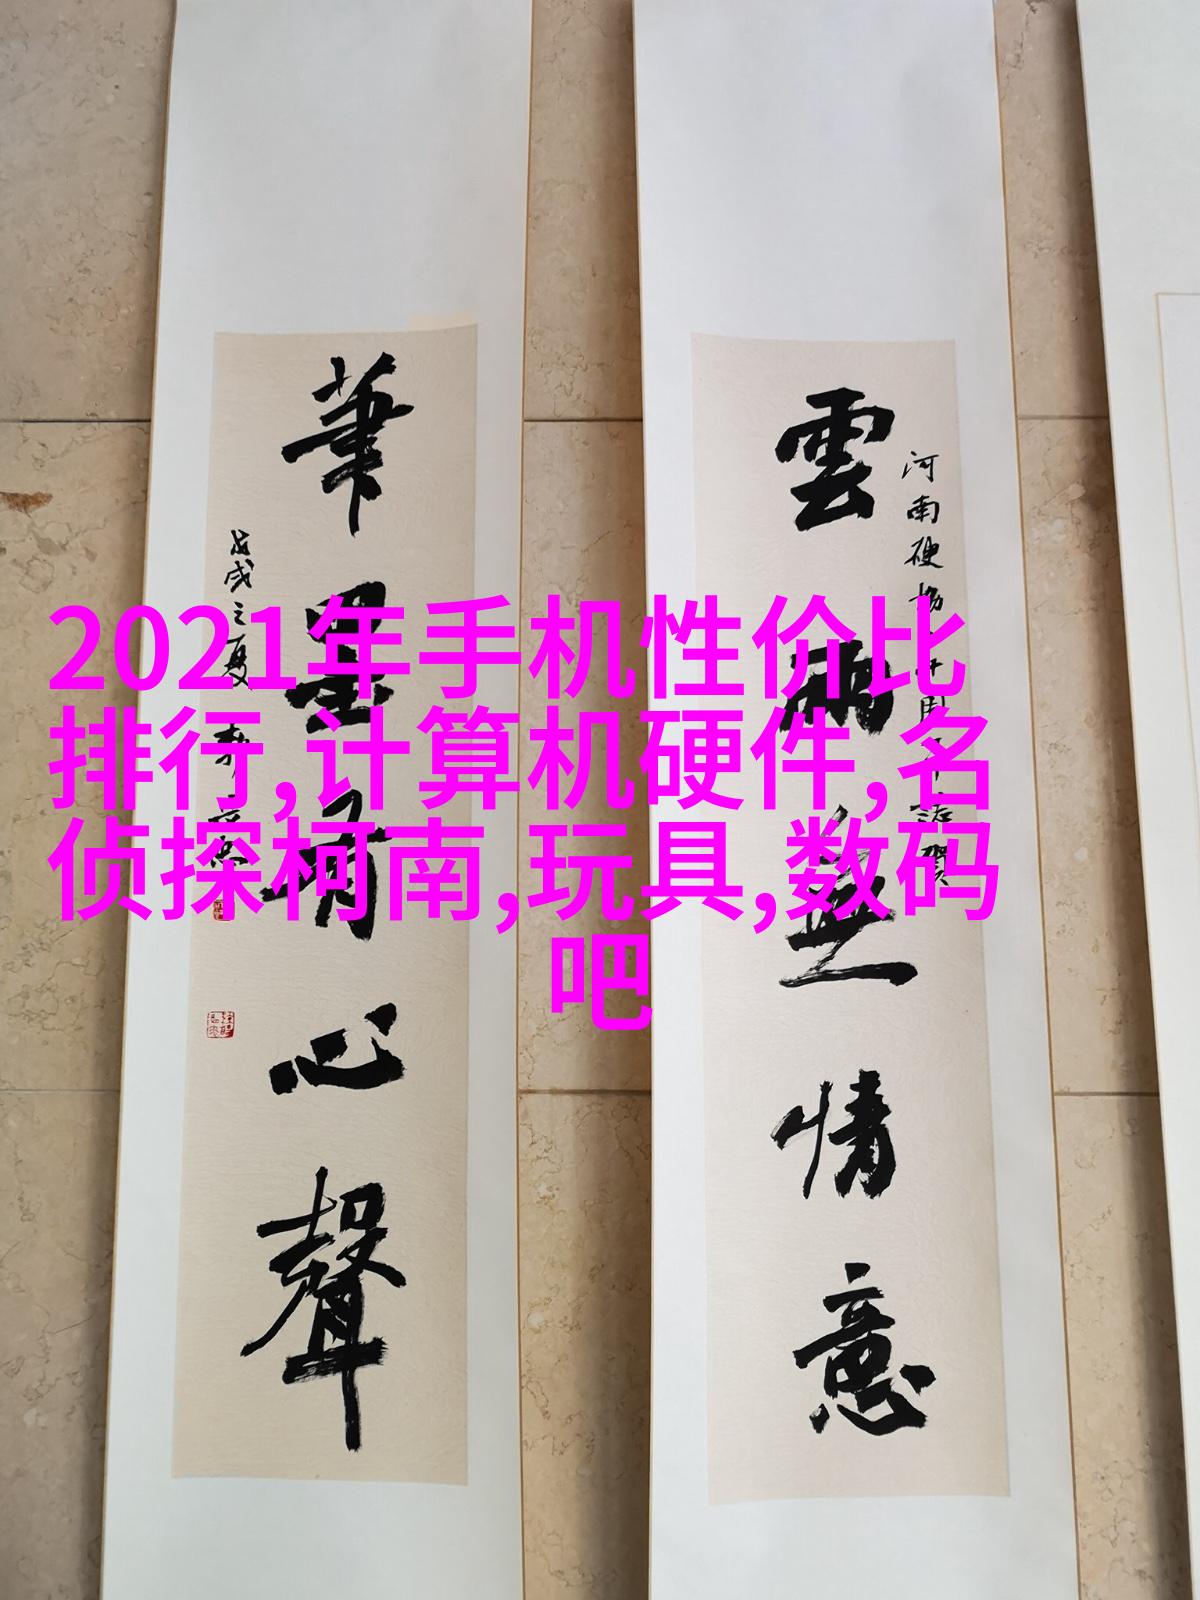 2021年手机性价比
排行,计算机硬件,名
侦探柯南,玩具,数码
吧
雲雨無情意
河南硬
筆墨有心聲
戊戌之夏